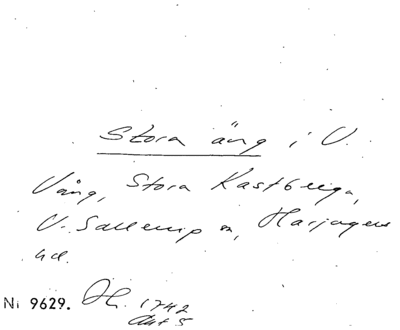 Stora äng i V.
Vång, Stora Kastberga,
V. Sallerup sn, Harjagers
hd.
Nr 9629. 1742
Akt 5